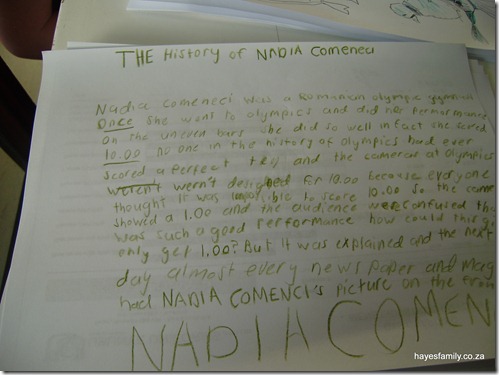 THE History of NADIA Comeneci
Nadia Comeneci was a Romanian olympic gymnast
Once she went to olympics and did her performance
on the uneven bars she did so well in fact she scored
10.00 no one in the history of olympics had ever
scored a perfect ten and the cameras at olympics
weren't wern't designed for 10.00 because everyone
thought it was impossible to score 10.00 so the
showed a 1.00 and the audience were confused
was such a good performance how could this
only get 1.00? But it was explained and the next
day almost every news paper and
had NADIA COMENCI's picture on the
NADIA COMEN
hayesfamily.co.za